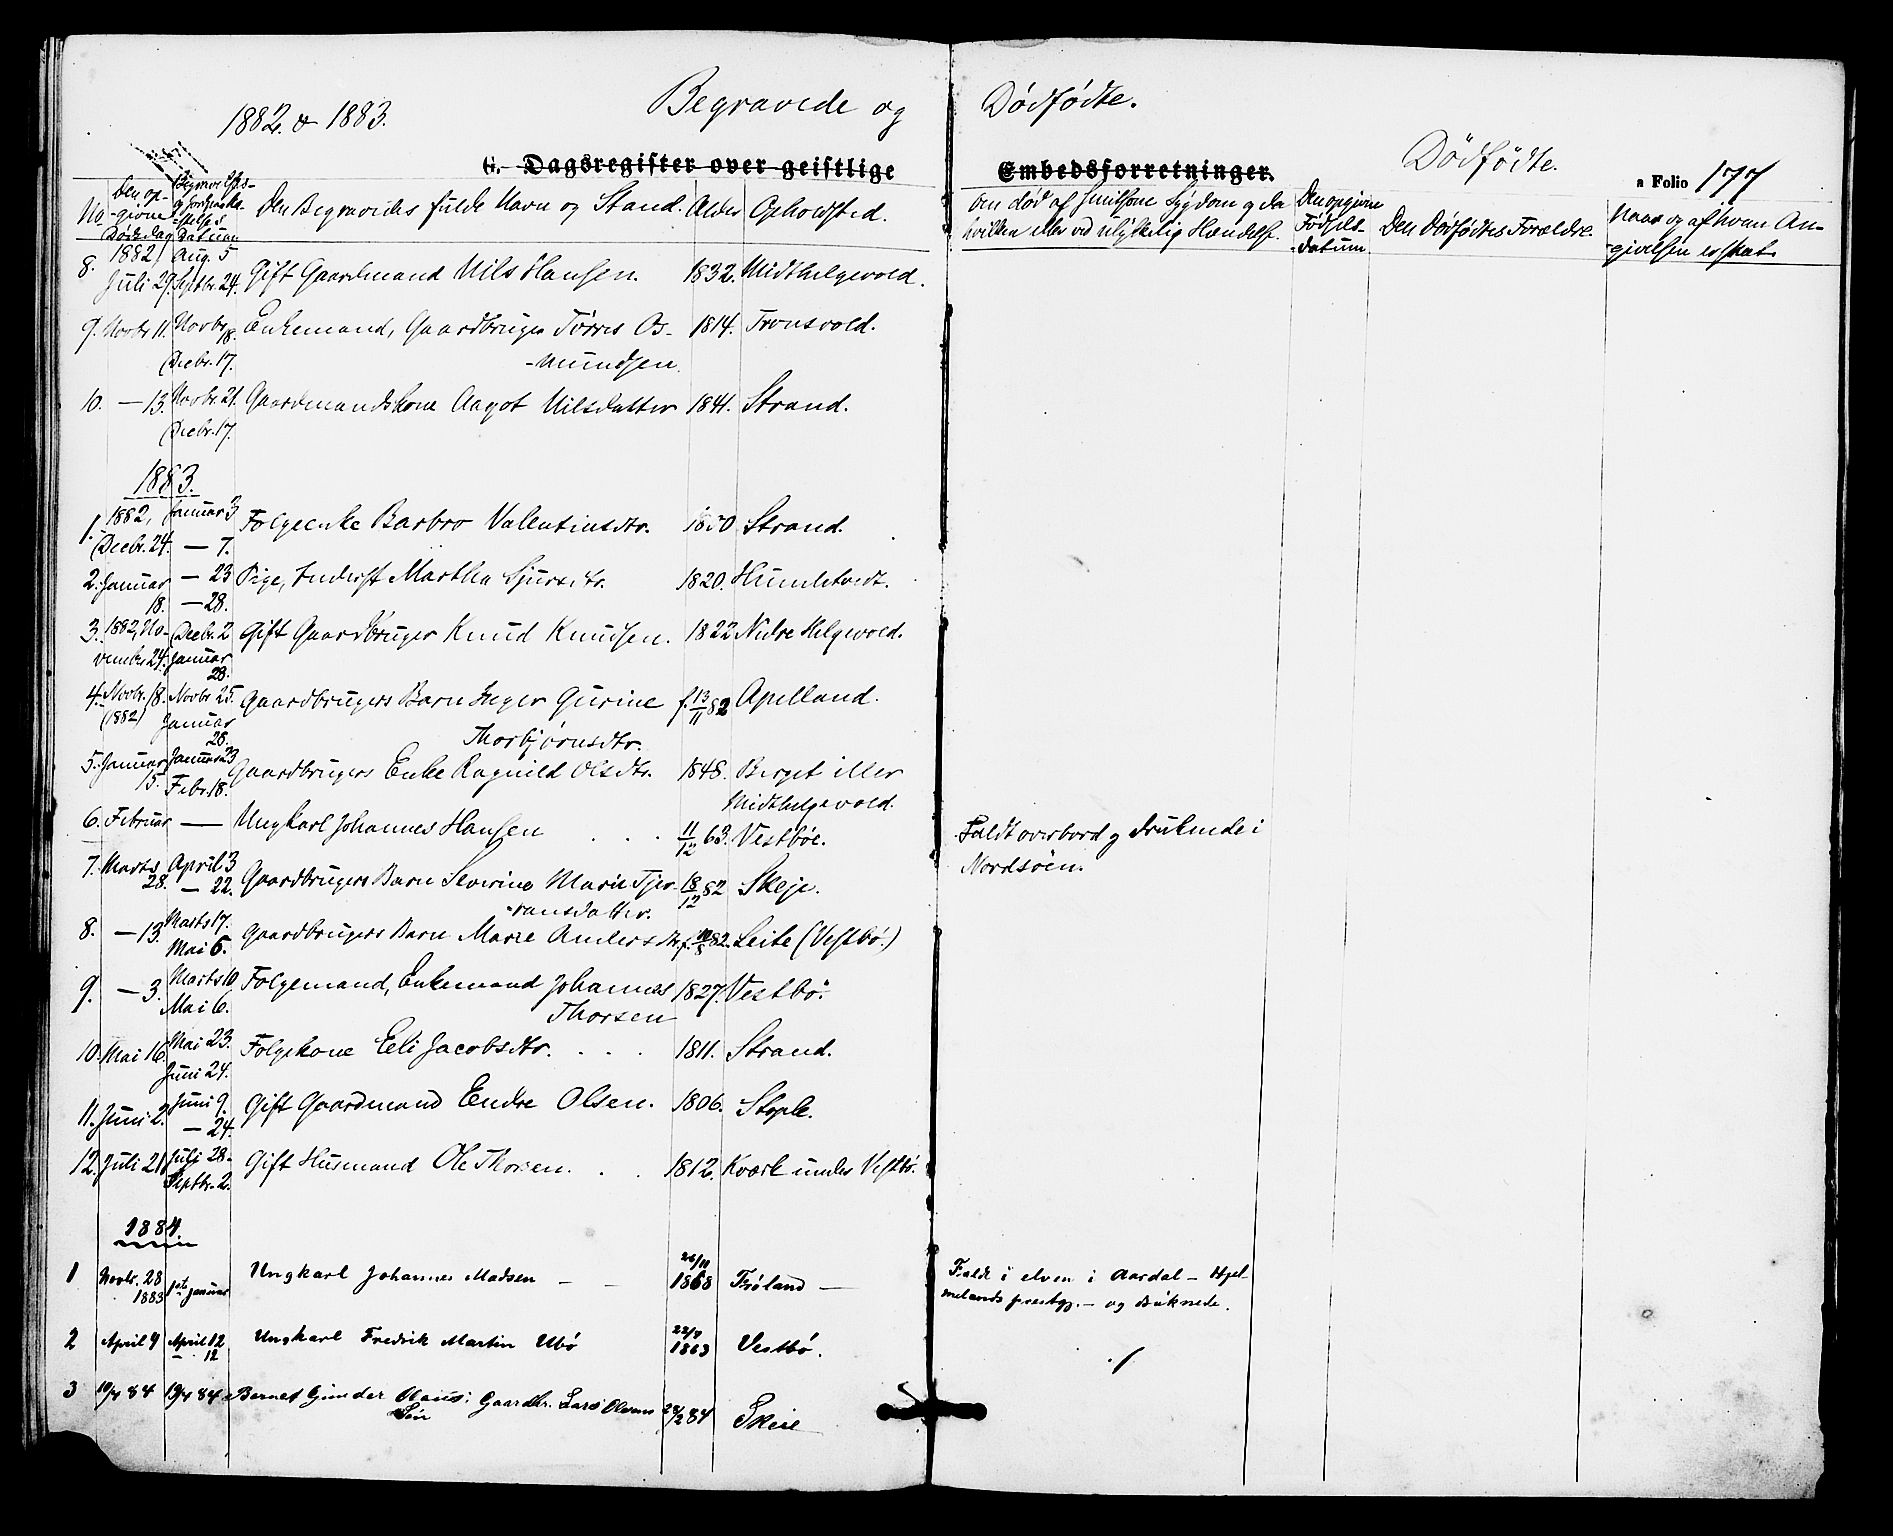 1882 & 1883.
Begravede og Dødfødte.
G. Dagsregister over geistlige Embedsforretninger.
Dødfødte.
a Folio 177
No
Den op-
givne
Dødsdag
Begravelses-
og Jordpaaka-
stelses
Datum
Den Begravedes fulde Navn og Stand.
Alder
Opholdsted.
Om død af smitsom Sygdom og da
hvilken eller ved ulykkelig Hændelse.
Den opgivne
Fødsels-
datum
Den Dødfødtes Forældre.
Naar og af hvem An-
givelsen er skat
8. 1882, Juli 29. Aug. 5 Septbr. 24. Gift Gaardmand Nils Hansen. 1832. Midthelgevold.
9. Novbr 11. Novbr 18. Enkemand, Gaardbruger Tørres Os- 1814. Tronsvold.
Decbr. 17. -mundsen.
10. — 13. Novbr 21. Gaardmandskone Aagot Nilsdatter 1841. Strand.
Decbr. 17.
1883.
1. 1882, Decbr. 24. Januar 3 — 7. Folgeenke Barbro Valentinsdtr. 1850 Strand.
2. Januar 18. — 23 — 28. Pige, Inderst Martha Sjursdtr. 1820. Humletvedt.
3. 1882, No-vember 24. Decbr. 2 Januar 28. Gift Gaardbruger Knud Knudsen. 1822 Nedre Helgevold.
4. Novbr. 18. (1882) Novbr 25. Januar 28. Gaardbrugers Barn Inger Gurine f. 13/11 82 Apelland.
Thorbjørnsdtr.
5. Januar 15. Januar 23 Febr. 18. Gaardbrugers Enke Ragnild Olsdtr. 1848. Berget eller
Midthelgevold.
6. Februar — Ungkarl Johannes Hansen . . . 11/12 63. Vestbøe. Faldt overbord og druknede i
Nordsøen.
7. Marts 28. April 3 — 22. Gaardbrugers Barn Severine Marie Tjer- 18/12 82 Skeje.
-ransdatter.
8. — 13. Marts 17. Mai 6. Gaardbrugers Barn Marie Andersdtr f. 82. Leite (Vestbø.)
9. — 3. Marts 10 Mai 6. Folgemand, Enkemand Johannes 1827. Vestbø.
Thorsen
10. Mai 16. Mai 23. Juni 24. Folgekone Eli Jacobsdtr. . . . 1811. Strand.
11. Juni 2. Juni 9. — 24. Gift Gaardmand Endre Olsen. 1806. Stople.
12. Juli 21 Juli 28. Septbr. 2. Gift Husmand Ole Thorsen. . . 1812. Kværk under Vestbø.
1884.
1 Novbr. 28 1883 1ste Januar Ungkarl Johannes Madsen — — 26/11 1868 Frøland — Faldt i elven i Aardal — Hjel-
melands prestgj. — og druknede.
2 April 4 April 12 — 12 Ungkarl Fredrik Martin Ubø 22/8 1863 Vestbø.
3 10/4 84 19/4 84 Bernet Gunder Olaus; Gaardbr. Lars Olsens 28/2 84 Skeie
Søn